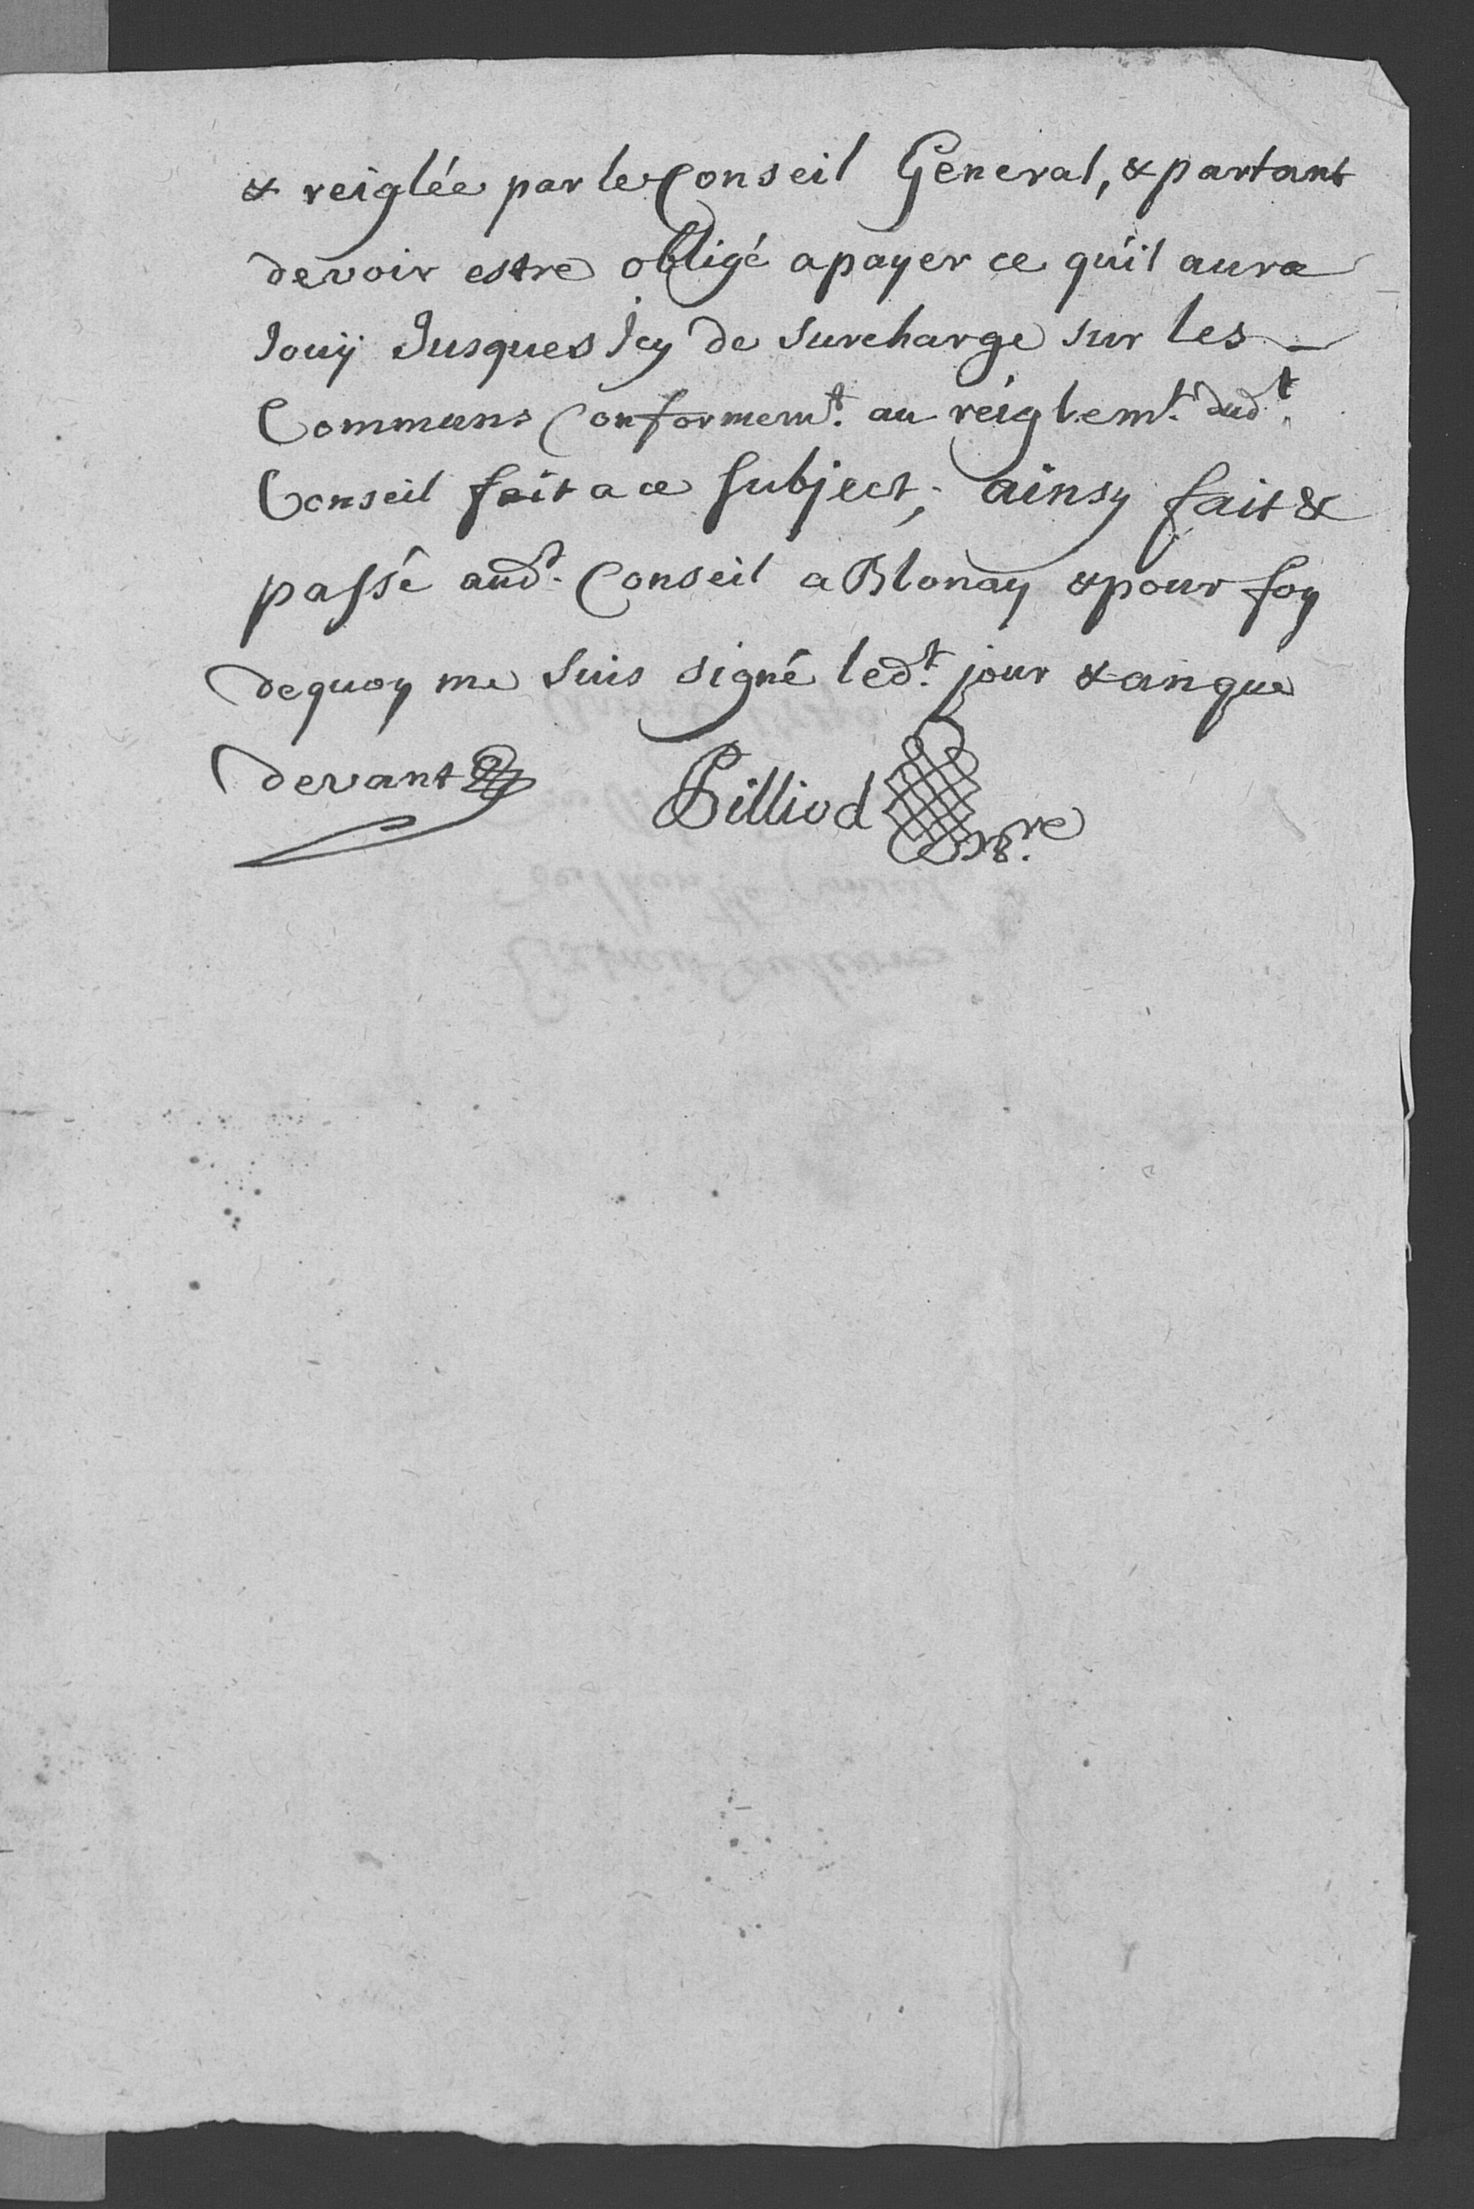 & reiglée par le Conseil General, & partant
devoir estre obligé a payer ce qu'il aura
Jouÿ Jusques Jcy de surcharge sur les
Communs Conformemt. au reiglemt. dudt.
Conseil fait a ce subject, ainsy fait &
passé audt. Conseil a Blonay & pour foy
dequoy me suis signé ledt. jour & an que
devant
Pilliod